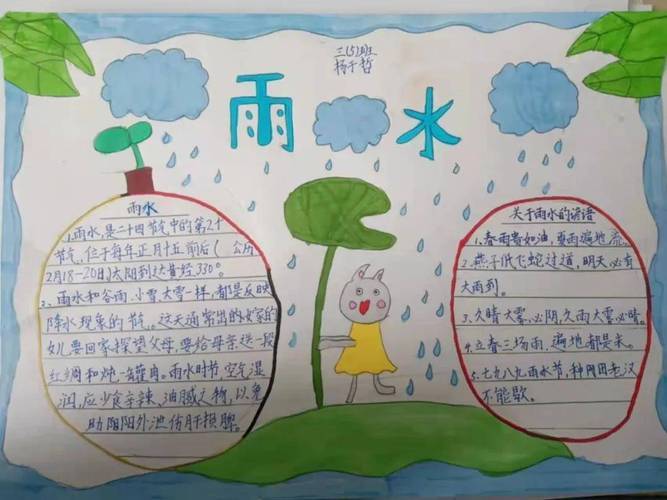 三(5)班
杨子哲
雨水
雨水
1、雨水,是二十四节气中的第2个
节气,位于每年正月十五前后(公历
2月18-20日)太阳到达黄经330°
2、雨水和谷雨、小雪、大雪一样,都是反映
降水现象的节气。这天通常出的嫁的
女儿要回家探望父母,要给母亲送一段
红绸和炖一罐肉。雨水时节,空气湿
润,应少食辛辣、油腻之物,以免
助阳外泄伤肝损脾。
关于雨水的谚语
1、春雨贵如油,夏雨遍地流。
2、燕子低飞蛇过道,明天必有
大雨到。
3、久晴大雾必阴,久雨大雾必晴。
4、立春三场雨,遍地都是米。
5、七九八九雨水节,种田老汉
不能歇。